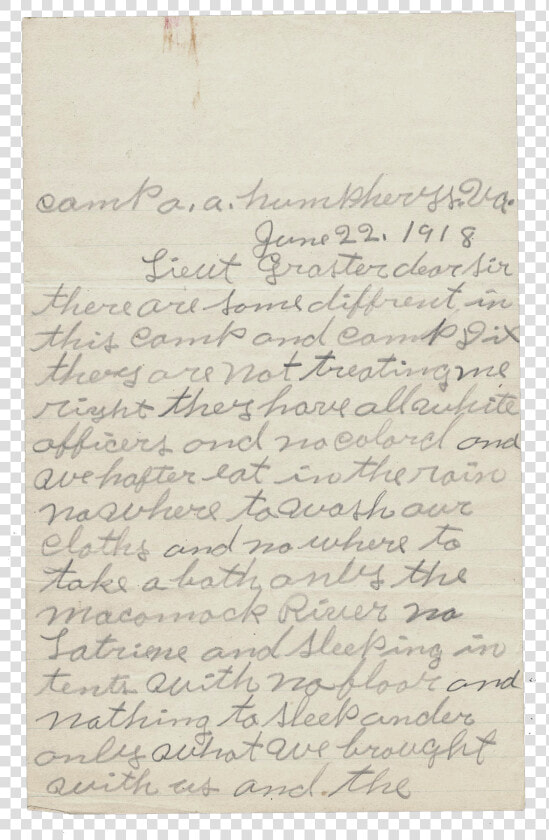 camp a. a. humpherys. Va.
June 22. 1918
Lieut Graster dear sir
there are some diffrent in
this camp and camp Dix
they are not treating me
right they have all white
officers and no colord and
we hafter eat in the rain
nowhere to wash our
cloths and nowhere to
take a bath only the
macomack River no
Latriene and sleeping in
tents with no floor and
nothing to sleep under
only what we brought
with us and. the